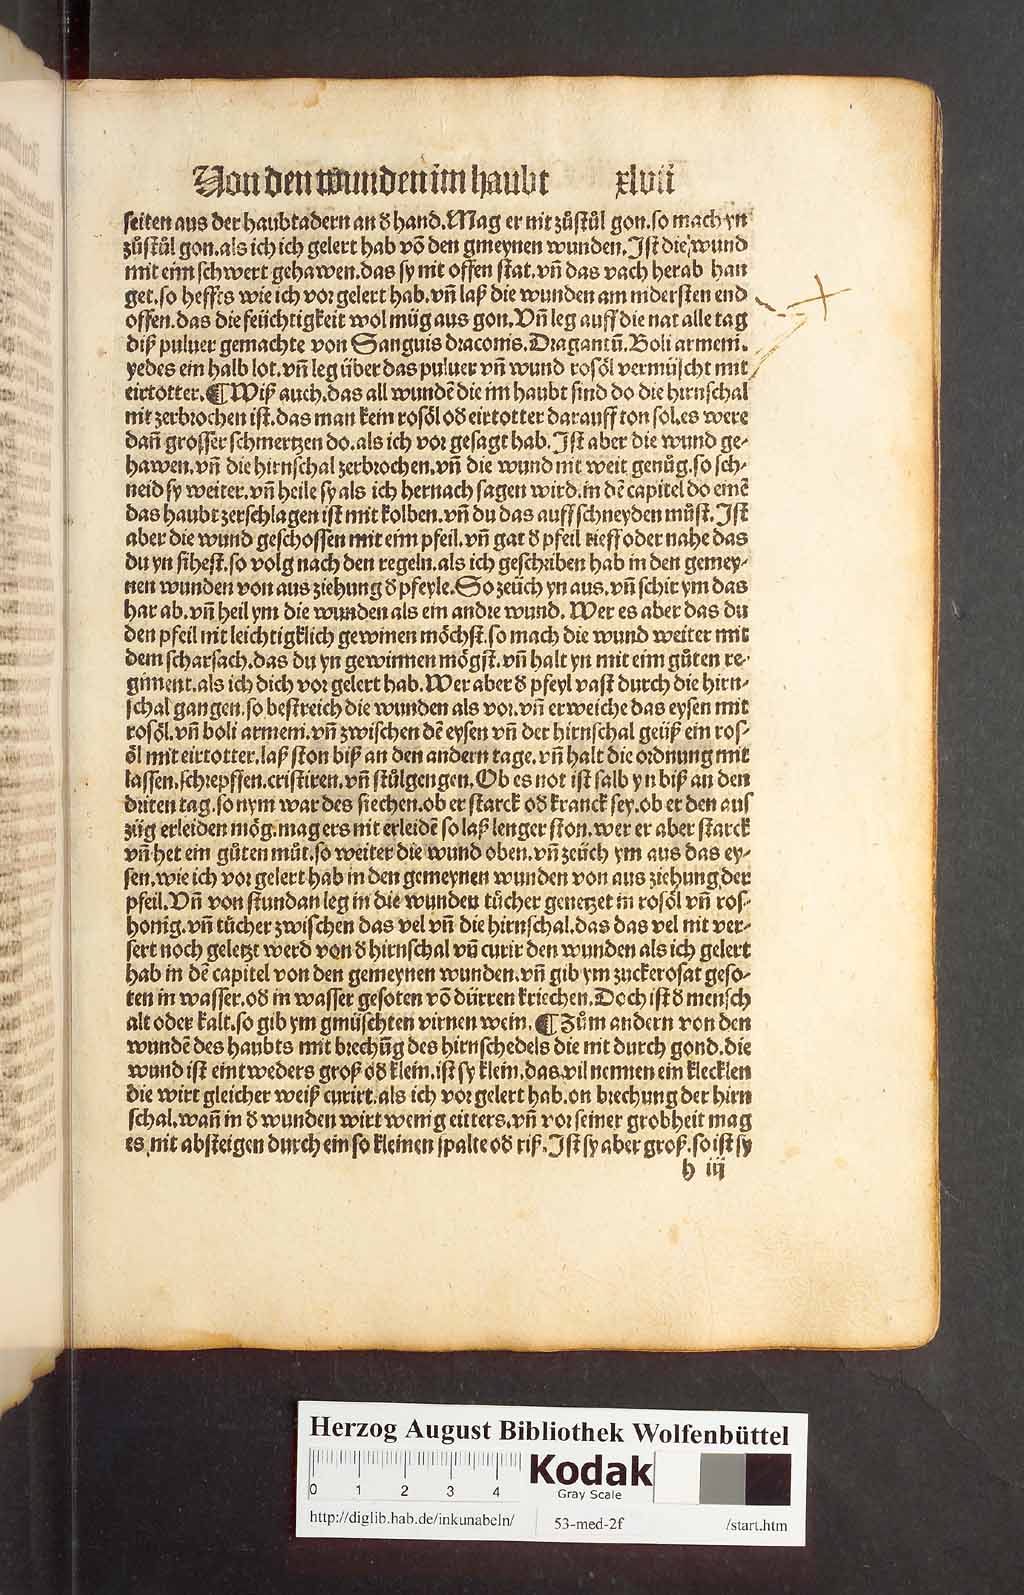 Von den wunden im haubt xlvii
seiten aus der haubtadern an d̕ hand. Mag er nit zůstůl gon. so mach yn
zůstůl gon. als ich ich gelert hab vō den gmeynen wunden. Ist die wund
mit eim schwert gehawen. das sy nit offen stat. vn̄ das vach herab han
get. so heffts wie ich vor gelert hab. vn̄ laß die wunden am nidersten end
offen. das die feüchtigkeit wol müg aus gon. Vn̄ leg auff die nat alle tag
diß puluer gemachte von Sanguis draconis. Dragantū. Boli armeni.
yedes ein halb lot. vn̄ leg über das puluer vn̄ wund rosöl vermüscht mit
eirtotter. ¶ Wiß auch. das all wundē die im haubt sind do die hirnschal
nit zerbrochen ist. das man kein rosöl od̕ eirtotter darauff ton sol. es were
dan̄ grosser schmertzen do. als ich vor gesagt hab. Ist aber die wund ge⸗
hawen. vn̄ die hirnschal zerbrochen. vn̄ die wund nit weit genůg. so sch⸗
neid sy weiter. vn̄ heile sy als ich hernach sagen wird. in dē capitel do einē
das haubt zerschlagen ist mit kolben. vn̄ du das auff schneyden můst. Ist
aber die wund geschossen mit eim pfeil. vn̄ gat d̕ pfeil tieff oder nahe das
du yn sihest. so volg nach den regeln. als ich geschriben hab in den gemey⸗
nen wunden von aus ziehung d̕ pfeyle. So zeüch yn aus. vn̄ schir ym das
har ab. vn̄ heil ym die wunden als ein andre wund. Wer es aber das du
den pfeil nit leichtigklich gewinen möchst. so mach die wund weiter mit
dem scharsach. das du yn gewinnen mögst. vn̄ halt yn mit eim gůten re⸗
giment. als ich dich vor gelert hab. Wer aber d̕ pfeyl vast durch die hirn⸗
schal gangen. so bestreich die wunden als vor. vn̄ erweiche das eysen mit
rosöl. vn̄ boli armeni. vn̄ zwischen dē eysen vn̄ der hirnschal geüß ein ros⸗
öl mit eirtotter. laß ston biß an den andern tage. vn̄ halt die ordnung mit
lassen. schrepffen. cristiren. vn̄ stůlgengen. Ob es not ist salb yn biß an den
driten tag. so nym war des siechen. ob er starck od̕ kranck sey. ob er den aus
züg erleiden mög. mag ers nit erleidē so laß lenger ston. wer er aber starck
vn̄ het ein gůten můt. so weiter die wund oben. vn̄ zeüch ym aus das ey⸗
sen. wie ich vor gelert hab in den gemeynen wunden von aus ziehung der
pfeil. Vn̄ von stundan leg in die wunden tücher genetzet in rosöl vn̄ ros⸗
honig. vn̄ tücher zwischen das vel vn̄ die hirnschal. das das vel nit ver⸗
sert noch geletzt werd von d̕ hirnschal vn̄ curir den wunden als ich gelert
hab in dē capitel von den gemeynen wunden. vn̄ gib ym zuckerosat geso⸗
ten in wasser. od̕ in wasser gesoten vō dürren kriechen. Doch ist d̕ mensch
alt oder kalt. so gib ym gmüschten virnen wein. ¶ Zům andern von den
wundē des haubts mit brechūg des hirnschedels die nit durch gond. die
wund ist eintweders groß od̕ klein. ist sy klein. das vil nennen ein klecklen
die wirt gleicher weiß curirt. als ich vor gelert hab. on brechung der hirn
schal. wan̄ in d̕ wunden wirt wenig eitters. vn̄ vor seiner grobheit mag
es nit absteigen durch ein so kleinen spalte od̕ riß. Ist sy aber groß. so ist sy
h iij
Herzog August Bibliothek Wolfenbüttel
0 1 2 3 4
Kodak
Gray Scale
http://diglib.hab.de/inkunabeln/ 53-med-2f /start.htm